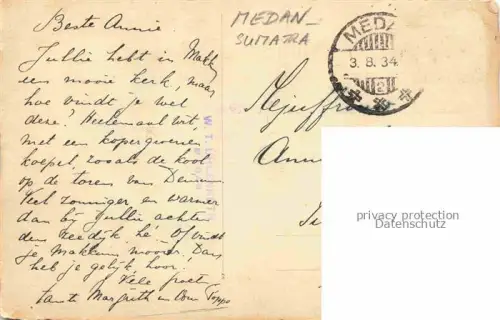 Beste Annie
Jullie hebt in Makkum
een mooie kerk, maar
hoe vindt je wel
deze? Heelemaal wit,
met een kopergroenen
koepel, zooals de kool
op de toren van
Veel zonniger en warmer
dan bij Jullie achter
den zeedijk hè! Of vindt
je Makkum mooier, Dan
heb je gelijk, hoor.
Vele groet
tante Margrieth en Oom
MEDAN
SUMATRA
MEDA
3.8.34
2
Mejuffr
Ann
privacy protection
Datenschutz